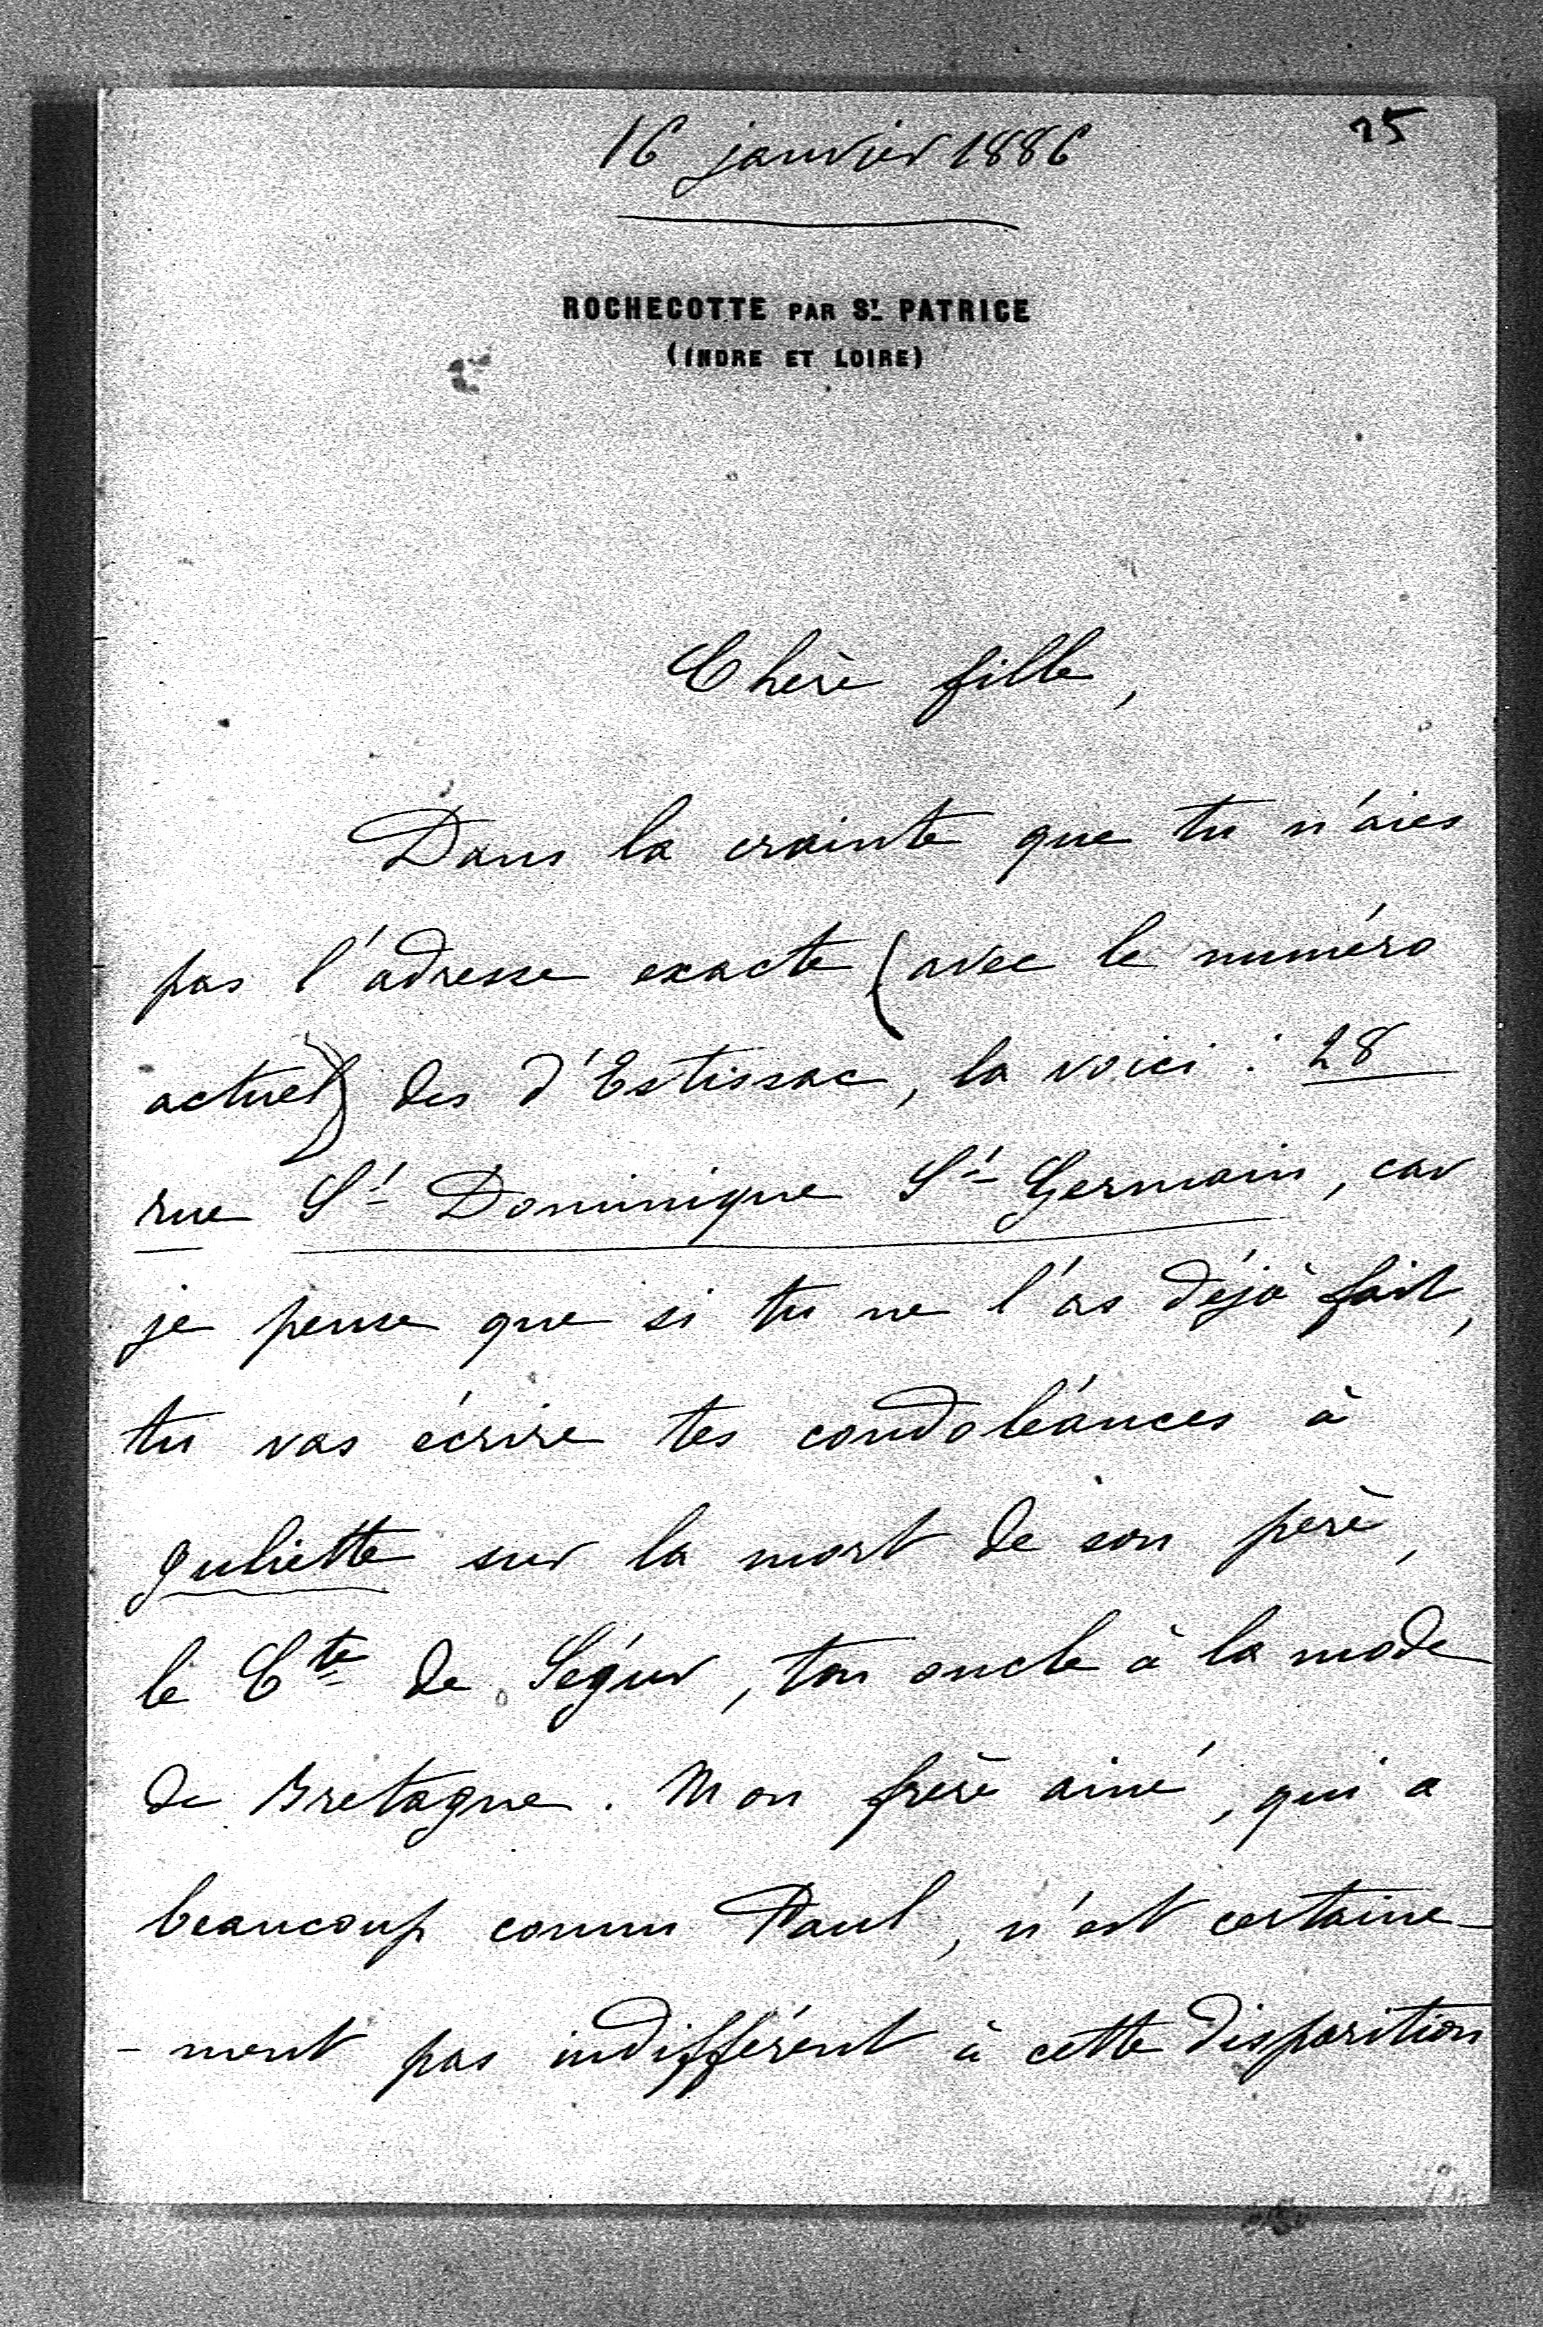 25
16 janvier 1886
ROCHECOTTE PAR St. PATRICE
(INDRE ET LOIRE)
Chère fille,
Dans la crainte que tu n'aies
pas l'adresse exacte (avec le numéro
actuel) des d'Estissac, la voici : 28
rue St Dominique St Germain, car
je pense que si tu ne l'as déjà fait,
tu vas écrire tes condoléances à
Juliette sur la mort de son père,
le Cte de Ségur, ton oncle à la mode
de Bretagne. Mon frère ainé, qui a
beaucoup connu Paul, n'est certaine-
-ment pas indifférent à cette disparition